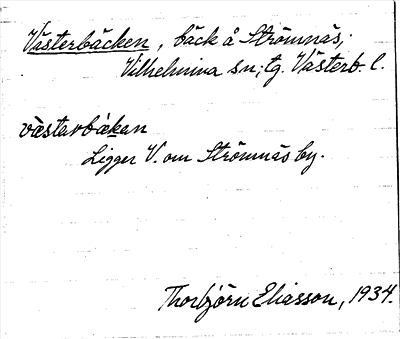 Västerbäcken, bäck å Strömnäs;
Vilhelmina sn; tg. Västerb. l.
västarbäkan
Ligger V. om Strömnäs by.
Thorbjörn Eliasson, 1934.